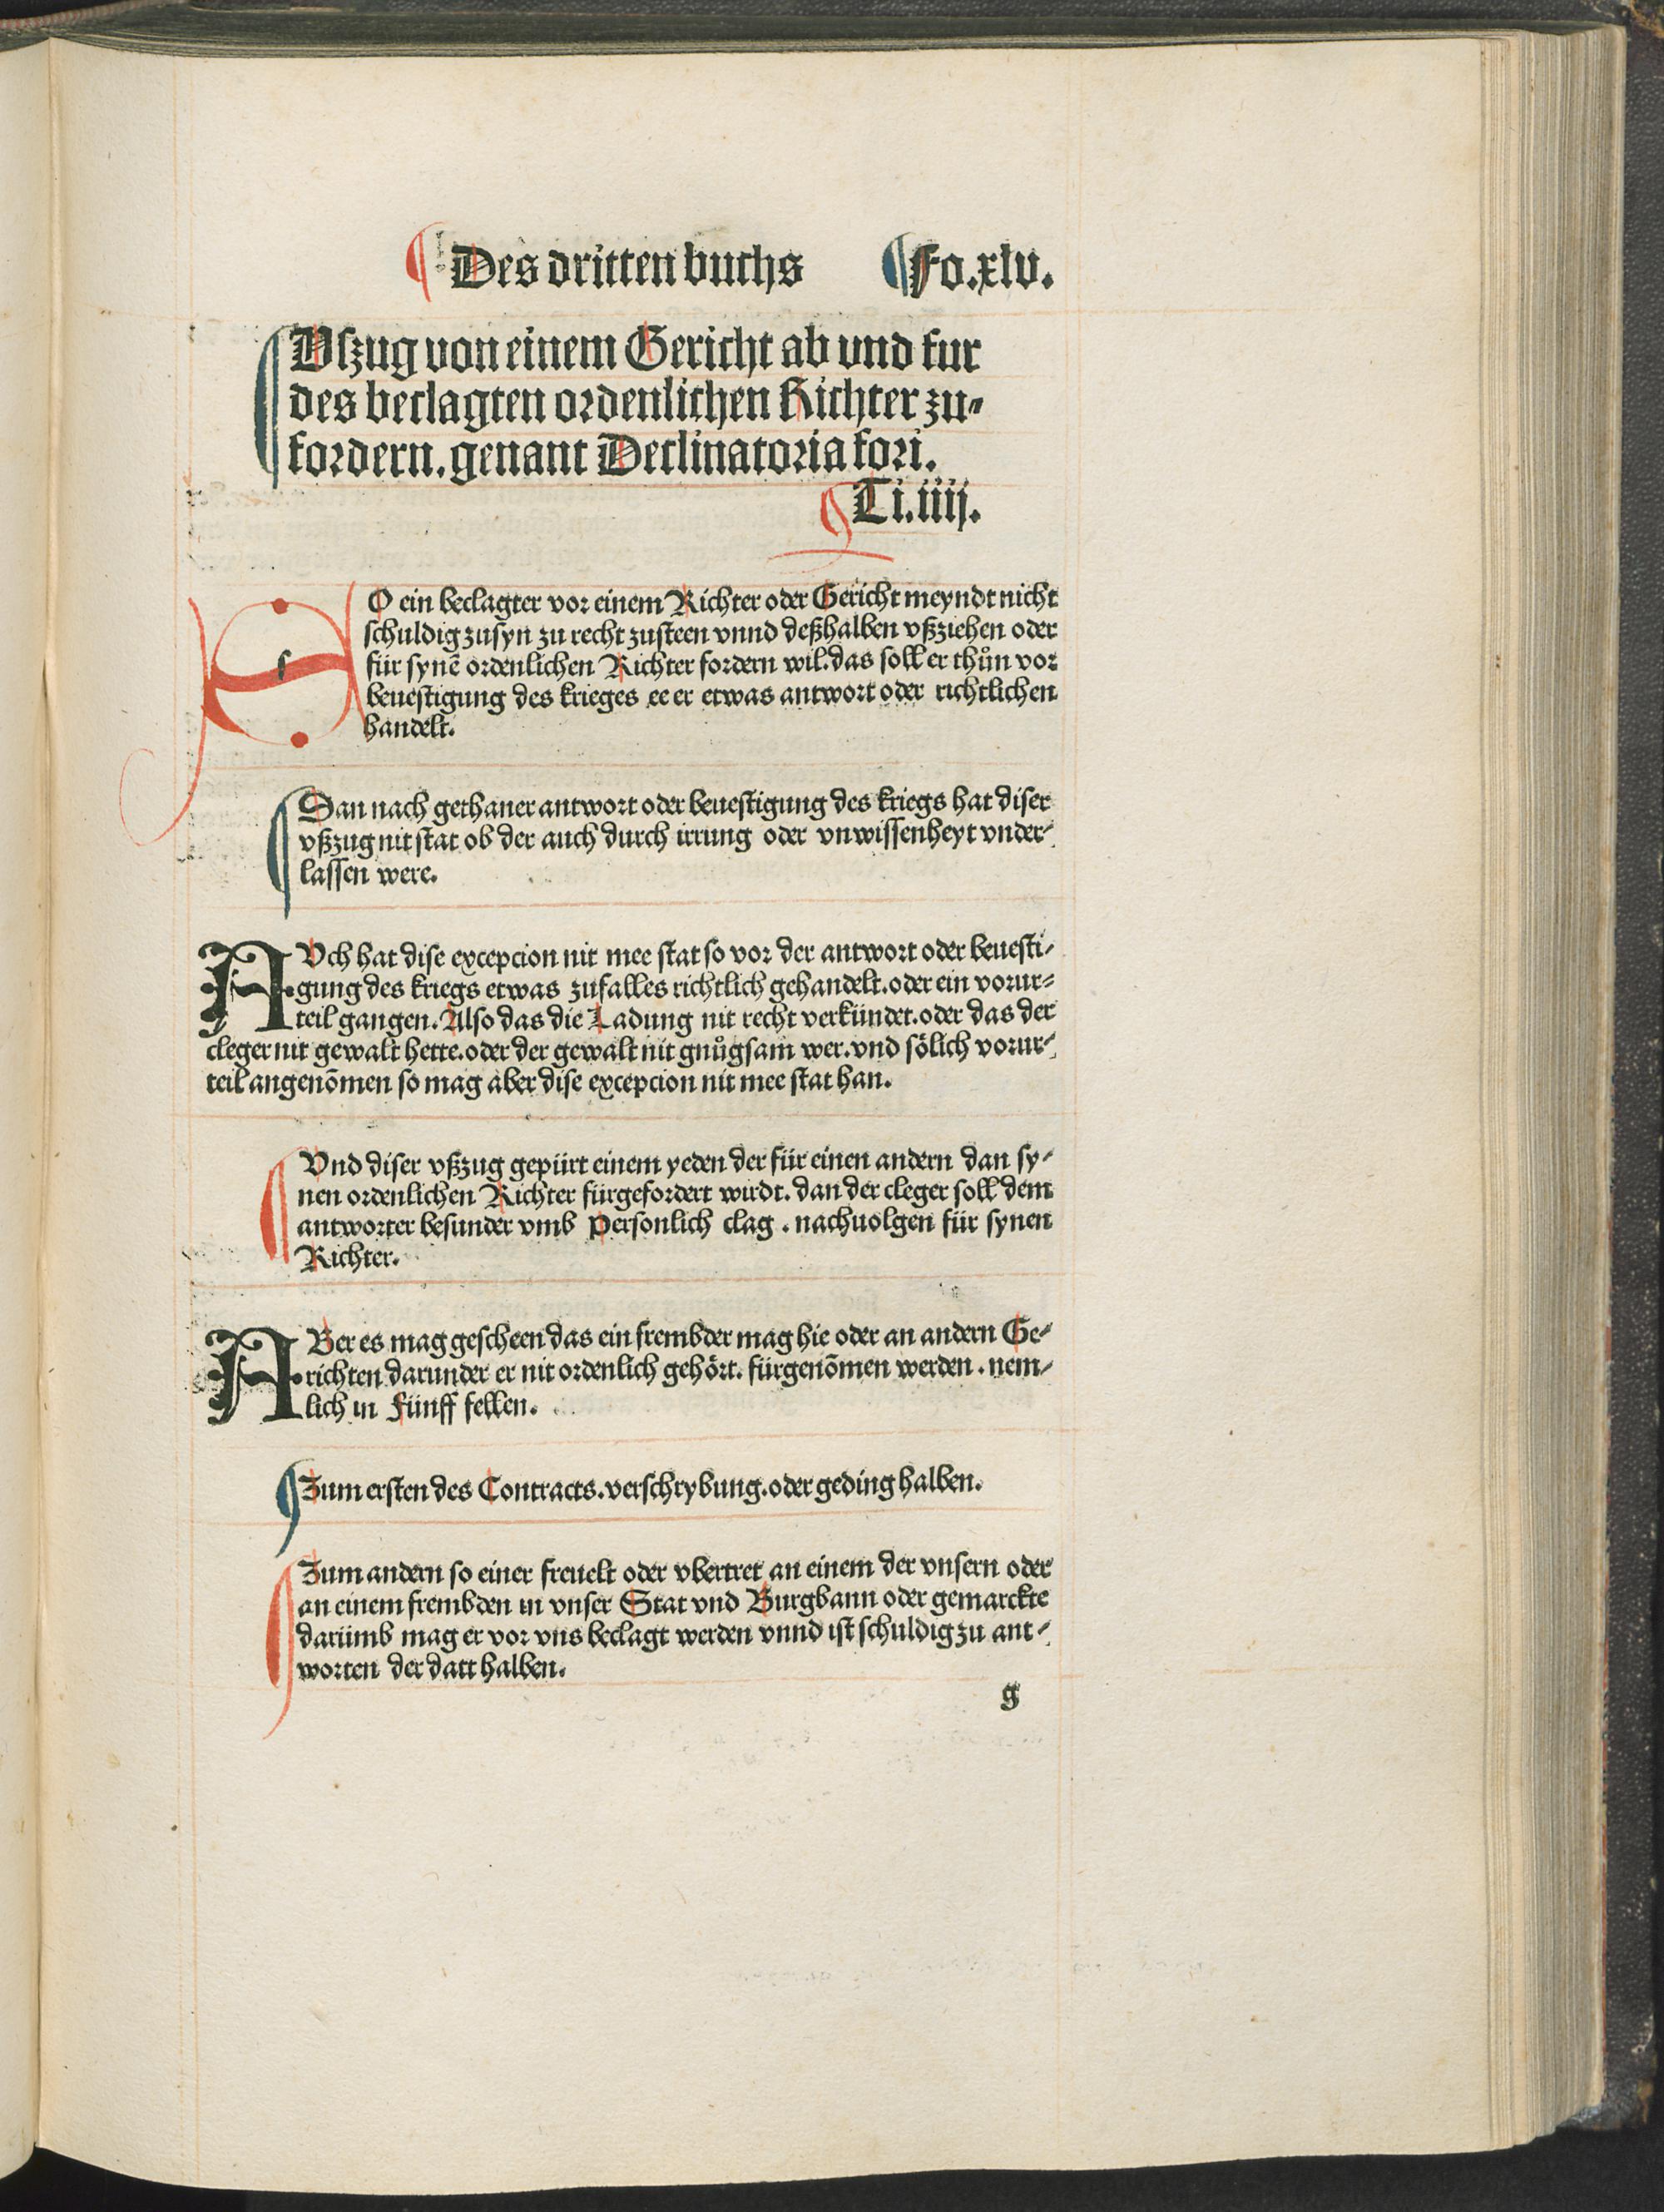 ¶ Des dritten buchs ¶ Fo.xlv.
¶ Vſzug von einem Gericht ab vnd fur
des beclagten ordenlichen Richter zu⸗
fordern. genant Declinatoria fori.
¶ Ti.iiij.
SO ein beclagter vor einem Richter oder Gericht meyndt nicht
ſchuldig zuſyn zu recht zuſteen vnnd deßhalben vßziehen oder
für ſynē ordenlichen Richter fordern wil. das ſoll er thůn vor
beueſtigung des krieges ee er etwas antwort oder richtlichen
handelt.
¶ Dan nach gethaner antwort oder beueſtigung des kriegs hat diſer
vßzug nit ſtat ob der auch durch irrung oder vnwiſſenheyt vnder⸗
laſſen were.
AVch hat diſe excepcion nit mee ſtat ſo vor der antwort oder beueſti⸗
gung des kriegs etwas zufalles richtlich gehandelt. oder ein vorur⸗
teil gangen. Alſo das die Ladung nit recht verkündet. oder das der
cleger nit gewalt hette. oder der gewalt nit gnůgſam wer. vnd ſölich vorur⸗
teil angenōmen ſo mag aber diſe excepcion nit mee ſtat han.
¶ Vnd diſer vßzug gepürt einem yeden der für einen andern dan ſy⸗
nen ordenlichen Richter fürgefordert wirdt. dan der cleger ſoll dem
antworter beſunder vmb Perſonlich clag. nachuolgen für ſynen
Richter.
ABer es mag geſcheen das ein frembder mag hie oder an andern Ge⸗
richten darunder er nit ordenlich gehört. fürgenōmen werden. nem⸗
lich in Fünff fellen.
¶ Zum erſten des Contracts. verſchrybung. oder geding halben.
¶ Zum andern ſo einer freuelt oder vbertret an einem der vnſern oder
an einem frembden in vnſer Stat vnd Burgbann oder gemarckte
darümb mag er vor vns beclagt werden vnnd iſt ſchuldig zu ant⸗
worten der datt halben.
g